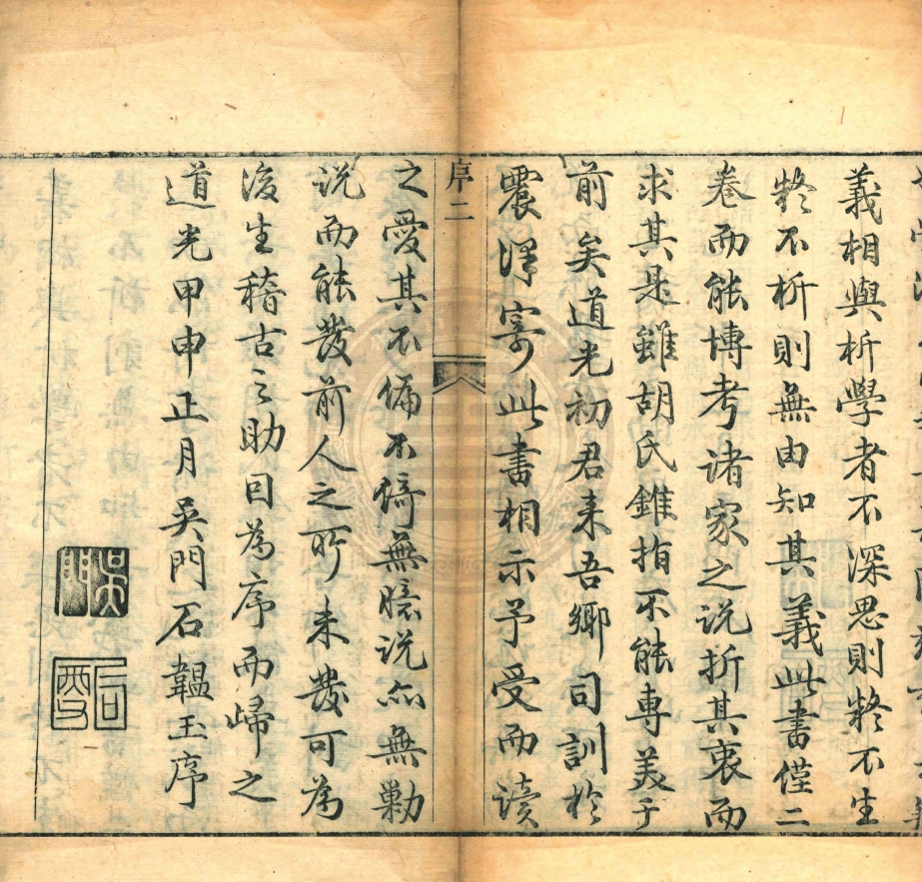 義相與析學者不深思則疑不生
疑不析則無由知其義此書僅二
卷而能博考諸家之说折其衷而
求其是雖胡氏錐指不能專美于
前矣道光初君来吾鄉司訓於
震澤寄此書相示予受而读
序二
之愛其不偏不倚無臆说亦無勦
说而能發前人之所未發可為
後生稽古之助因為序而歸之
道光甲申正月吳門石韞玉序
吳門